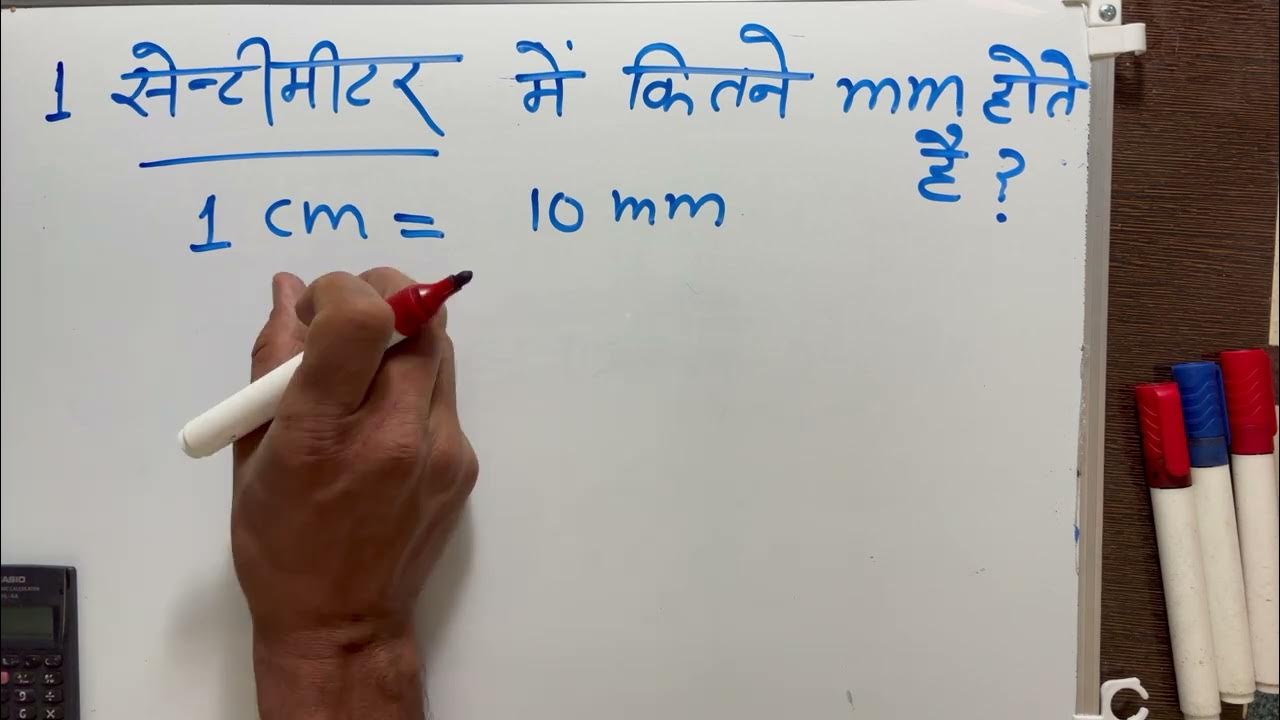 1 सेन्टीमीटर में कितने mm होते
है ?
1 cm = 10 mm